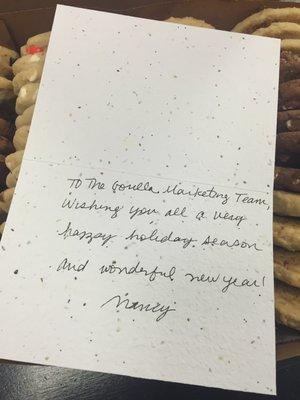 To The Gorilla Marketing Team,
Wishing you all a very
happy holiday season
and wonderful new year!
Nancy